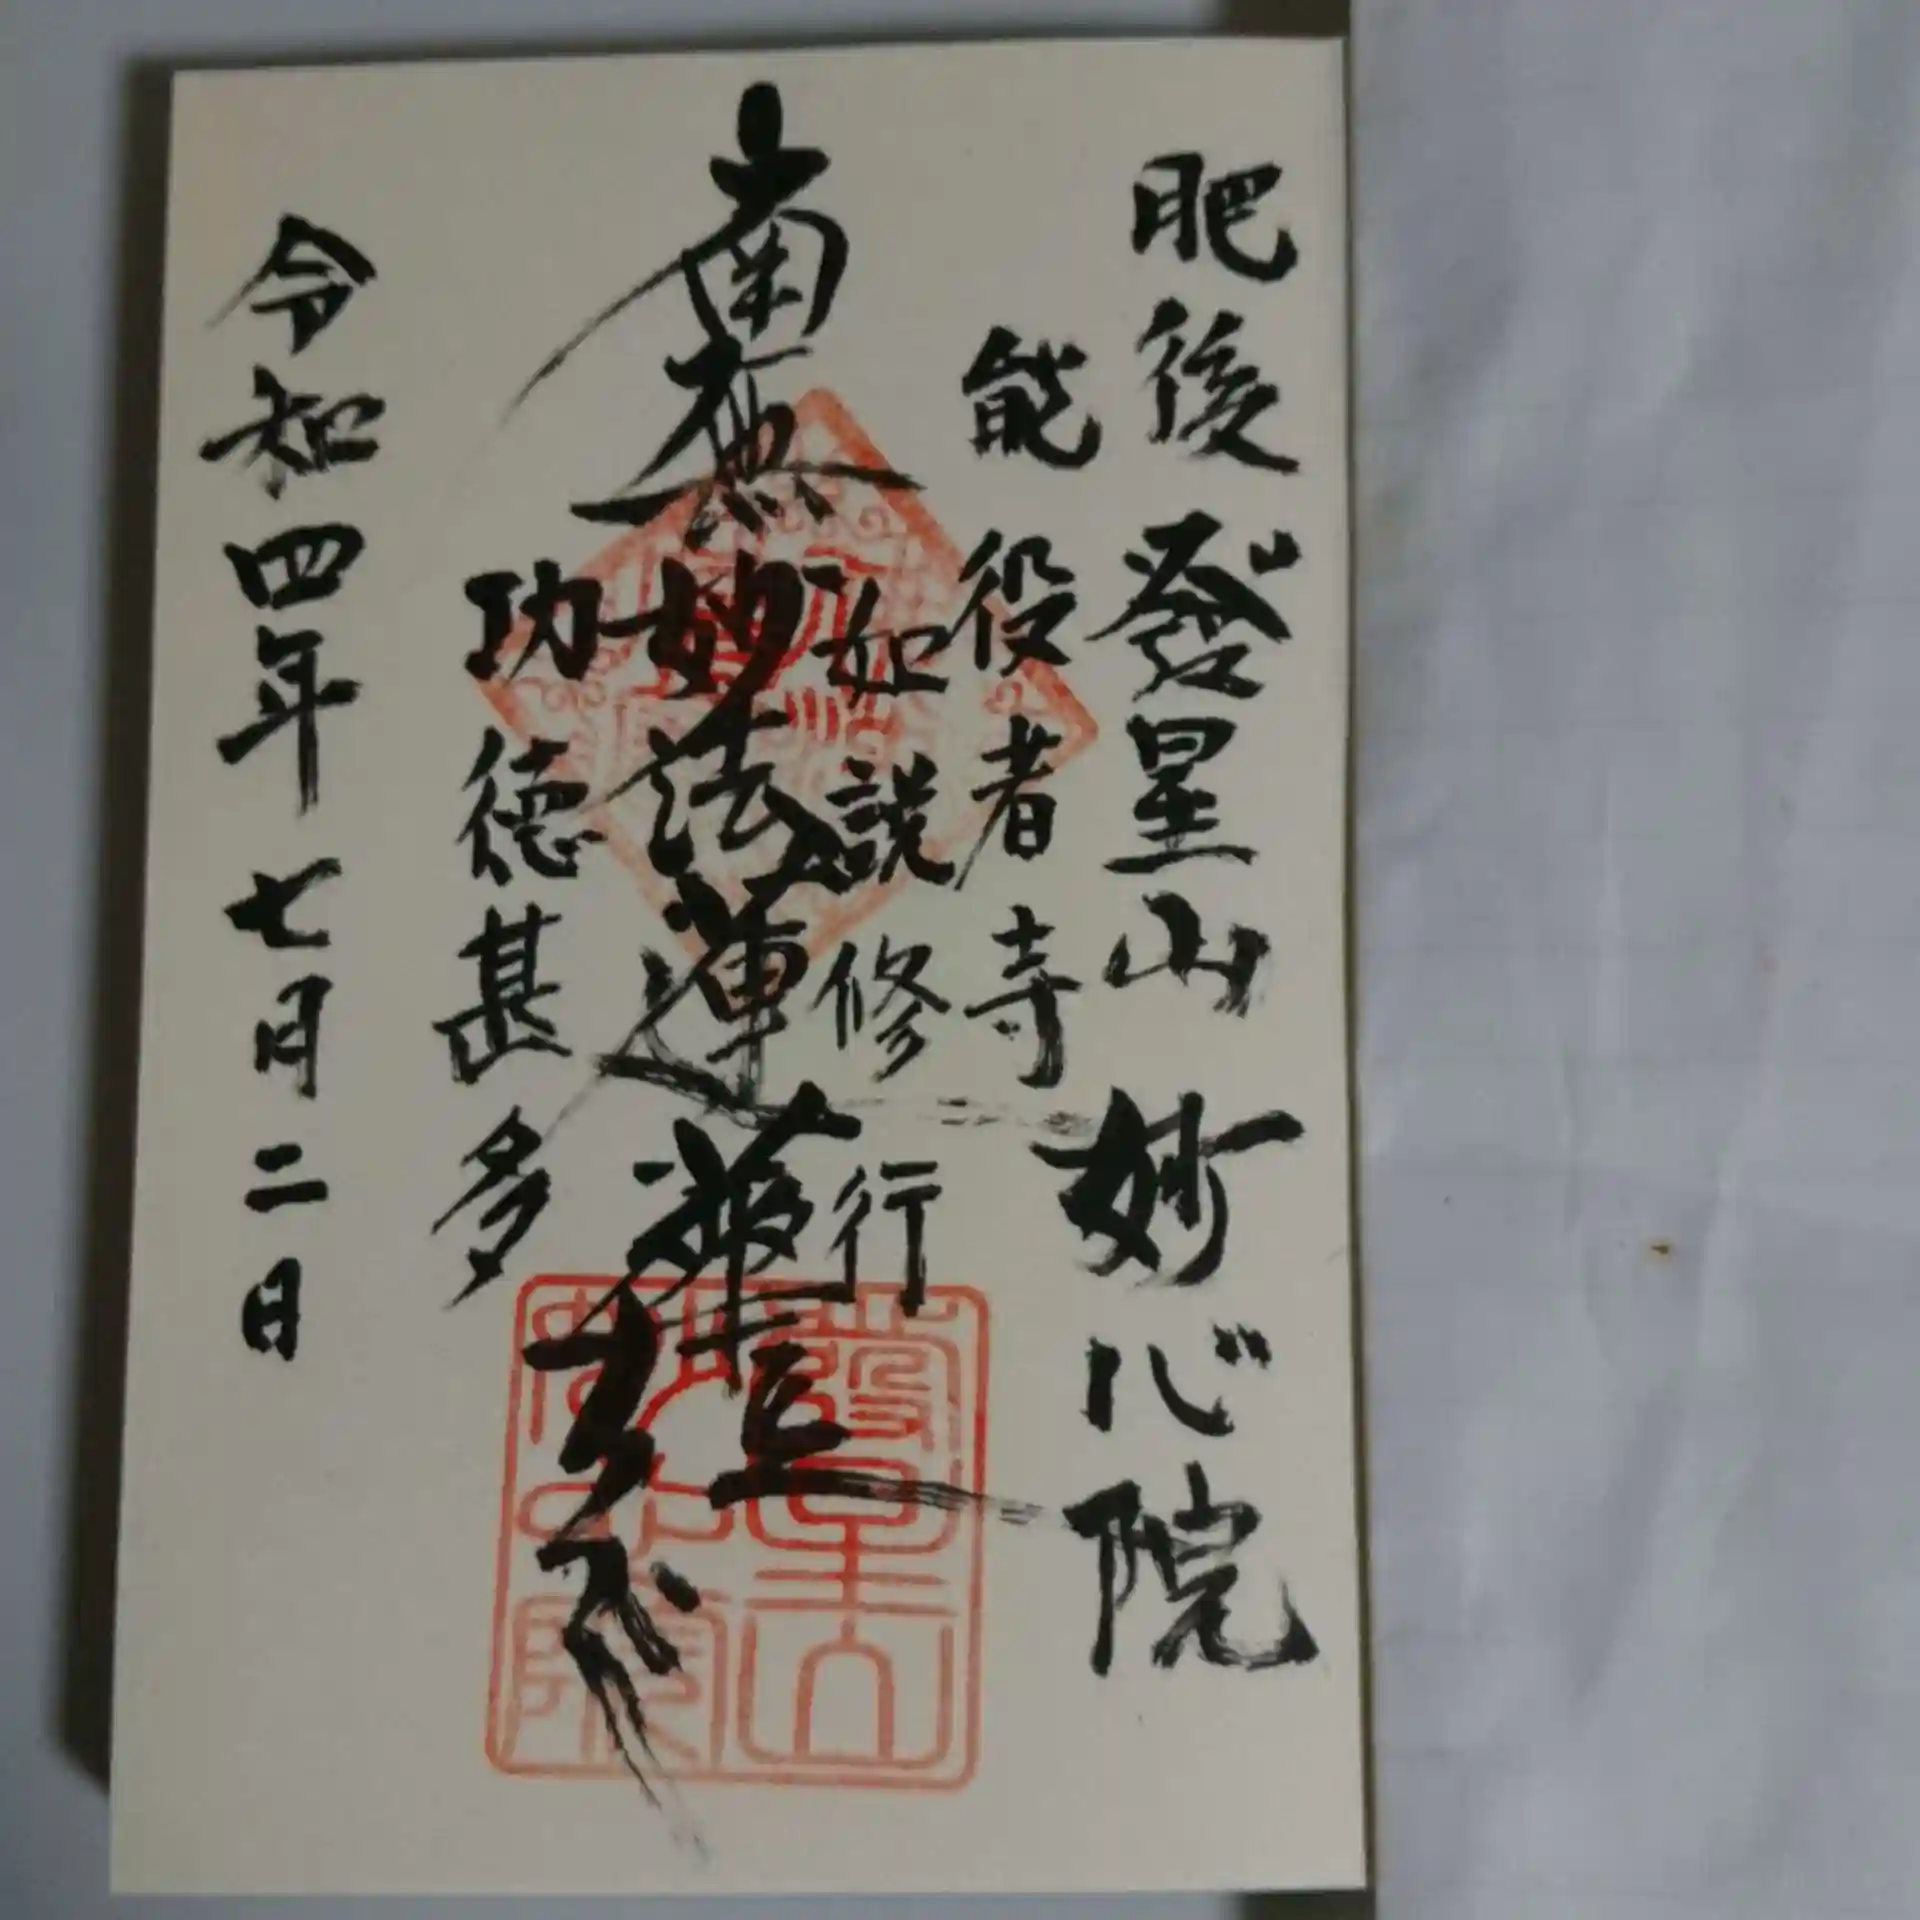 肥後發星山妙心院
能役者寺
如説修行
南無妙法蓮華経
功徳甚多
令和四年七月二日
發星山
妙心院